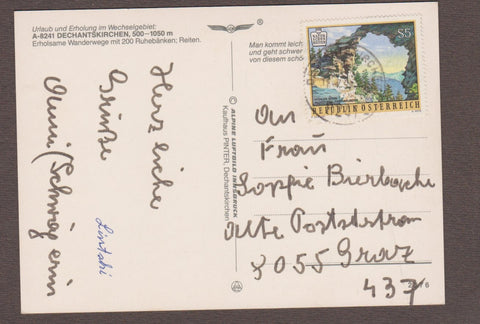 Urlaub und Erholung im Wechselgebiet:
A-8241 DECHANTSKIRCHEN, 500—1050 m
Erholsame Wanderwege mit 200 Ruhebänken; Reiten.
Man kommt leich
und geht schwer
von diesem schö
S5
REPUBLIK ÖSTERREICH
© ALPINE LUFTBILD INNSBRUCK
Kaufhaus PINTER, Dechantskirchen
Herzliche
Grüße
Anni (Schwägerin
An
Frau
Soppie
Alte Poststrom
8055 Graz
437